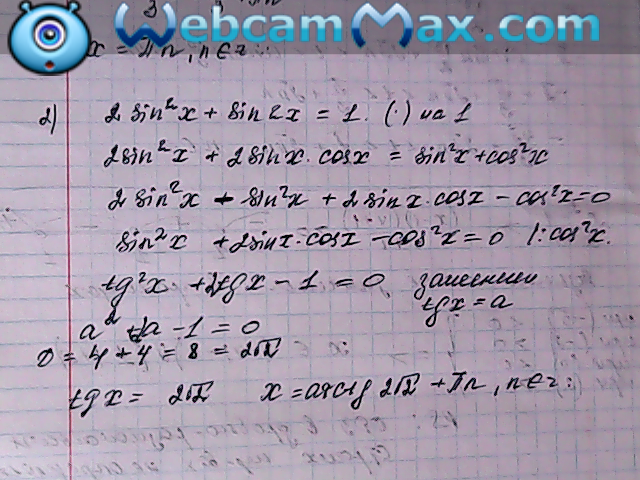 WebcamMax.com
x = πn, n∈z:
2) 2 sin²x + sin 2x = 1. (·) на 1
2sin²x + 2sinx · cosx = sin²x + cos²x
2 sin²x - sin²x + 2 sinx · cosx - cos²x = 0
sin²x + 2sinx · cosx - cos²x = 0 |: cos²x.
tg²x + 2tgx - 1 = 0 заменим
tgx = a
a² + 2a - 1 = 0
D = 4 + 4 = 8 = 2√2
tgx = 2√2 x = arctg 2√2 + πn, n∈z: